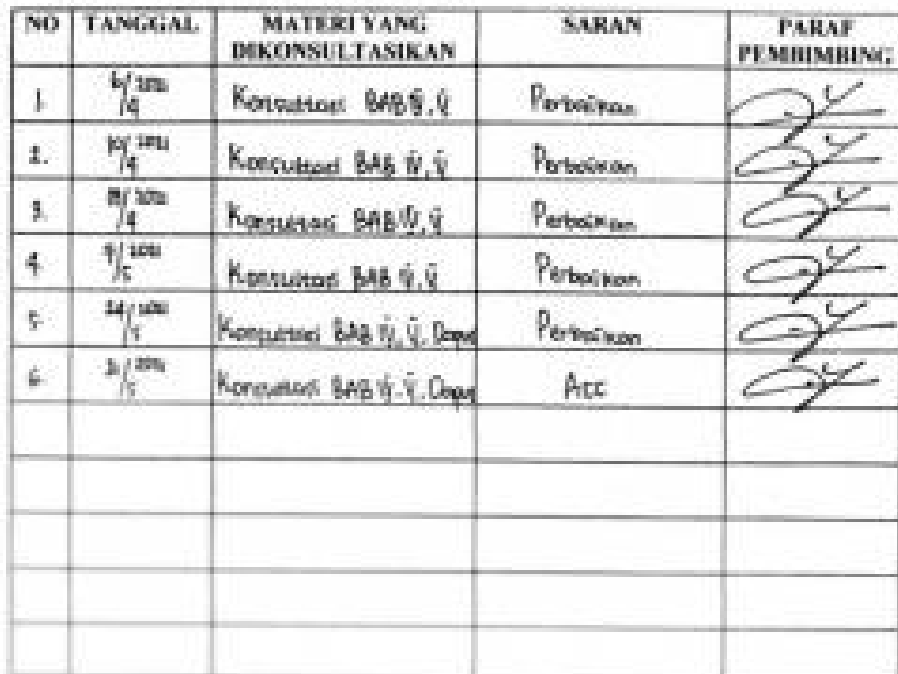 NO TANGGAL MATERI YANG DIKONSULTASIKAN SARAN PARAF PEMBIMBING
1. Konsultasi BAB IV, V Perbaikan
2. Konsultasi BAB IV, V Perbaikan
3. Konsultasi BAB IV, V Perbaikan
4. Konsultasi BAB IV, V Perbaikan
5. Konsultasi BAB IV, V, Dapus Perbaikan
6. Konsultasi BAB IV, V, Dapus Acc